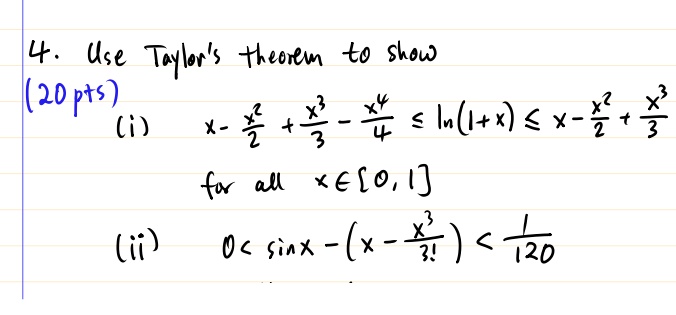 4. Use Taylor's theorem to show
(20 pts)
(i) x - x²/2 + x³/3 - x⁴/4 ≤ ln(1+x) ≤ x - x²/2 + x³/3
for all x ∈ [0, 1]
(ii) 0 < sinx - (x - x³/3!) < 1/120